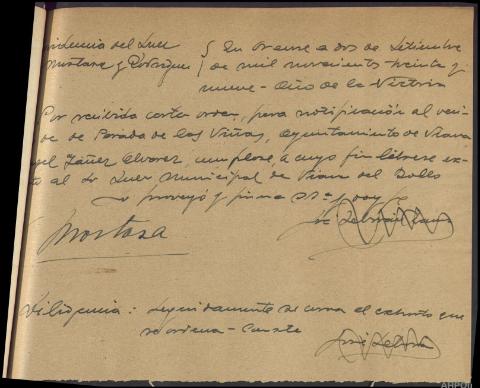 idencia del Juez } En Orense a dos de Setiembre
Mostaza y Rodriguez } de mil novecientos treinta y
nueve - Año de la Victoria
Por recibida carta orden, para notificación al veci-
de Parada de las Viñas, ayuntamiento de Viana
Yañez Alvarez, cumplase, a cuyo fin librese ex-
to al Sr Juez Municipal de Viana del Bollo
Lo proveyó y firma Sª y doy
Mostaza
Diligencia: Seguidamente se cursa el exhorto que
se ordena - Conste
ARPOu